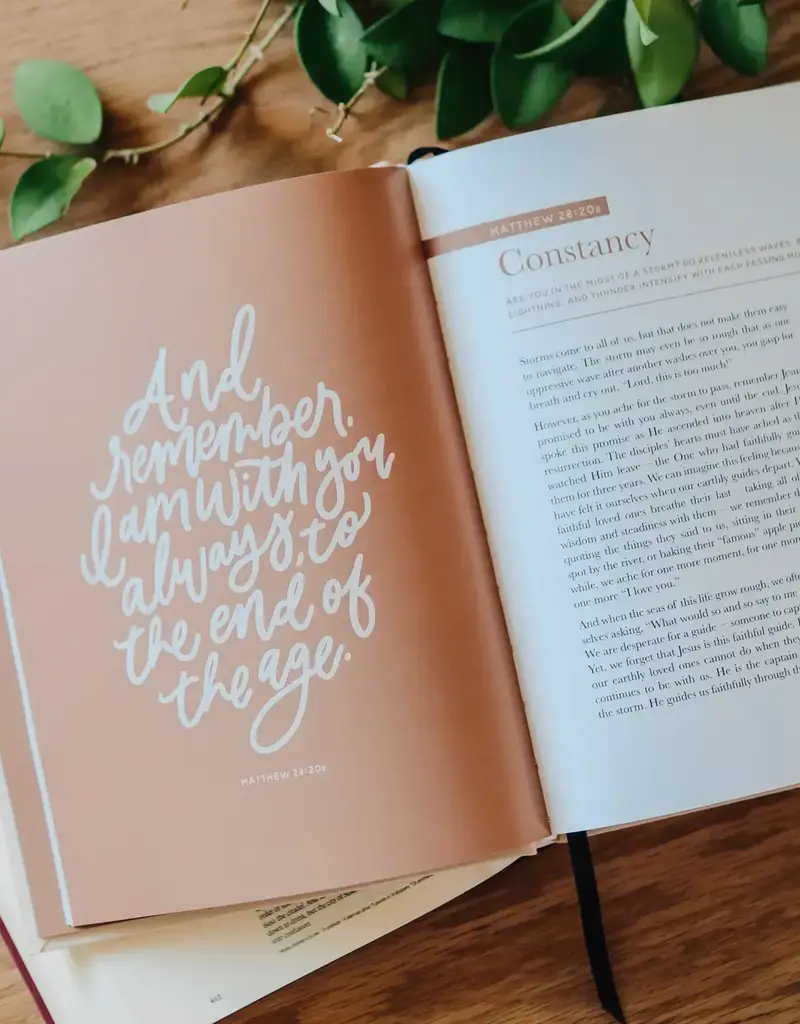 And
remember,
I am with you
always, to
the end of
the age.
MATTHEW 28:20B
MATTHEW 28:20B
Constancy
ARE YOU IN THE MIDST OF A STORM? DO RELENTLESS WAVES,
LIGHTNING, AND THUNDER INTENSIFY WITH EACH PASSING
Storms come to all of us, but that does not make them easy
to navigate. The storm may even be so rough that as one
oppressive wave after another washes over you, you gasp for
breath and cry out, "Lord, this is too much!"
However, as you ache for the storm to pass, remember
promised to be with you always, even until the end.
spoke this promise as He ascended into heaven after
resurrection. The disciples' hearts must have ached as
watched Him leave – the One who had faithfully
them for three years. We can imagine this feeling
have felt it ourselves when our earthly guides depart.
faithful loved ones breathe their last – taking all of
wisdom and steadiness with them – we remember
quoting the things they said to us, sitting in their
spot by the river, or baking their "famous" apple
while, we ache for one more moment, for one
one more "I love you."
And when the seas of this life grow rough, we
selves asking, "What would so and so say to me
We are desperate for a guide – someone to
Yet, we forget that Jesus is this faithful guide.
our earthly loved ones cannot do when they
continues to be with us. He is the captain
the storm. He guides us faithfully through